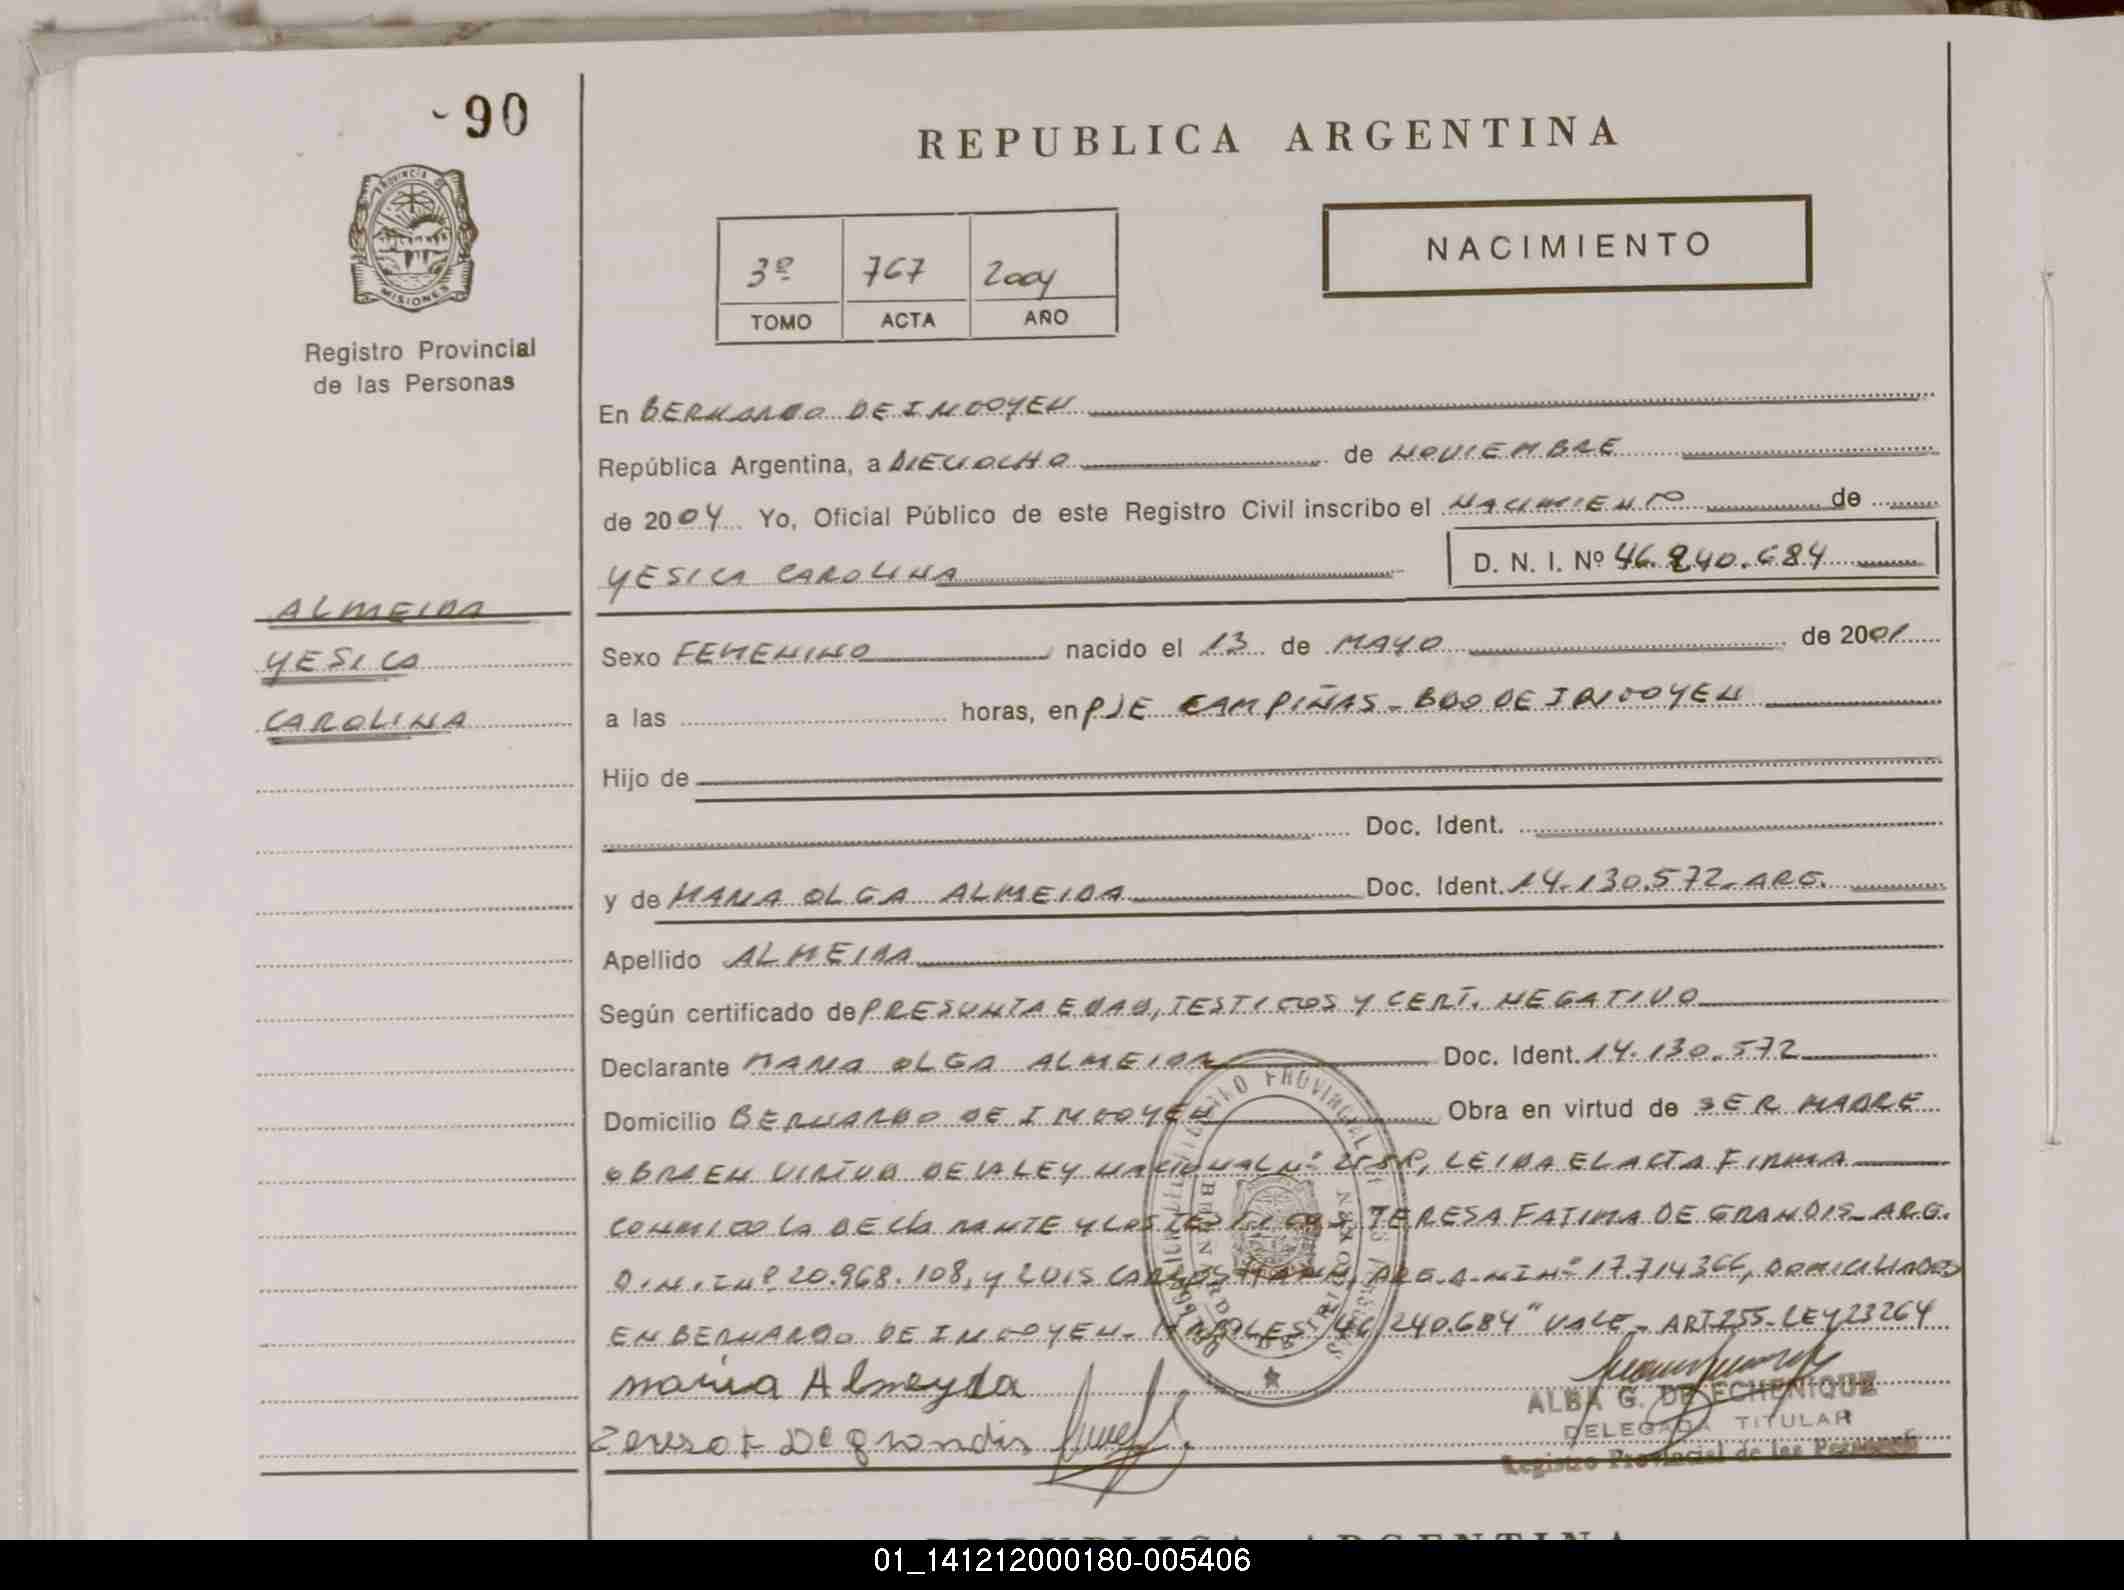 90
REPUBLICA ARGENTINA
PROVINCIA DE
MISIONES
Registro Provincial
de las Personas
3º 767 2004
TOMO ACTA AÑO
NACIMIENTO
En BERNARDO DE IRIGOYEN
República Argentina, a DIECIOCHO de NOVIEMBRE
de 2004 Yo, Oficial Público de este Registro Civil inscribo el NACIMIENTO de
YESICA CAROLINA D. N. I. Nº 46.240.684
ALMEIDA
YESICA
CAROLINA
Sexo FEMENINO nacido el 13 de MAYO de 2001
a las horas, en PJE CAMPIÑAS - BDO DE IRIGOYEN
Hijo de
Doc. Ident.
y de MARIA OLGA ALMEIDA Doc. Ident. 14.130.572 - ARG.
Apellido ALMEIDA
Según certificado de PRESUNTA EDAD, TESTIGOS Y CERT. NEGATIVO
Declarante MARIA OLGA ALMEIDA Doc. Ident. 14.130.572
Domicilio BERNARDO DE IRIGOYEN Obra en virtud de SER MADRE
OBRA EN VIRTUD DE LA LEY NACIONAL Nº LEIDA EL ACTA FIRMA
CONMIGO LA DECLARANTE Y LOS TESTIGOS TERESA FATIMA DE GRANDIS - ARG.
D.N.I Nº 20.968.108, Y LUIS CARLOS ARG. D.N.I Nº 17.714366, DOMICILIADOS
EN BERNARDO DE IRIGOYEN - 46.240.684" VALE - ART 255 - LEY 23264
maria Almeyda
Teresa F De grandis
ALBA G. DE ECHENIQUE
DELEGADA TITULAR
Registro Provincial de las Personas
REPUBLICA ARGENTINA
01_141212000180-005406